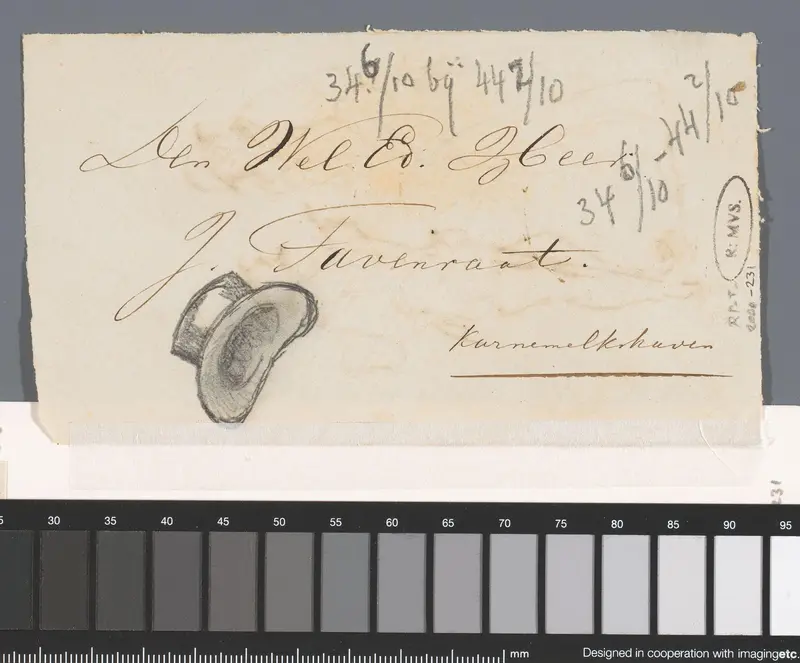 34 6/10 bij 44 2/10
34 6/10 - 44 2/10
Den Wel. Ed. Heer.
J. Tavenraat.
Karnemelkshaven
R: MVS.
231
5 30 35 40 45 50 55 60 65 70 75 80 85 90 95
mm
Designed in cooperation with imagingetc.